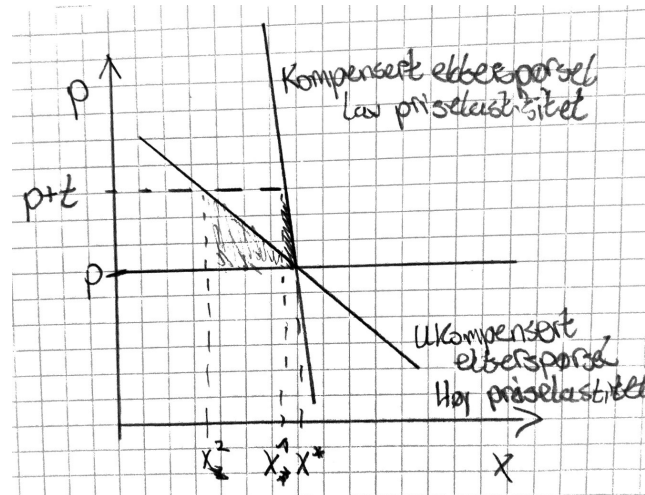 Kompensert etterspørsel
Lav priselastisitet
p
p+t
p
Ukompensert
etterspørsel
Høy priselastitet
X² X¹ X* X